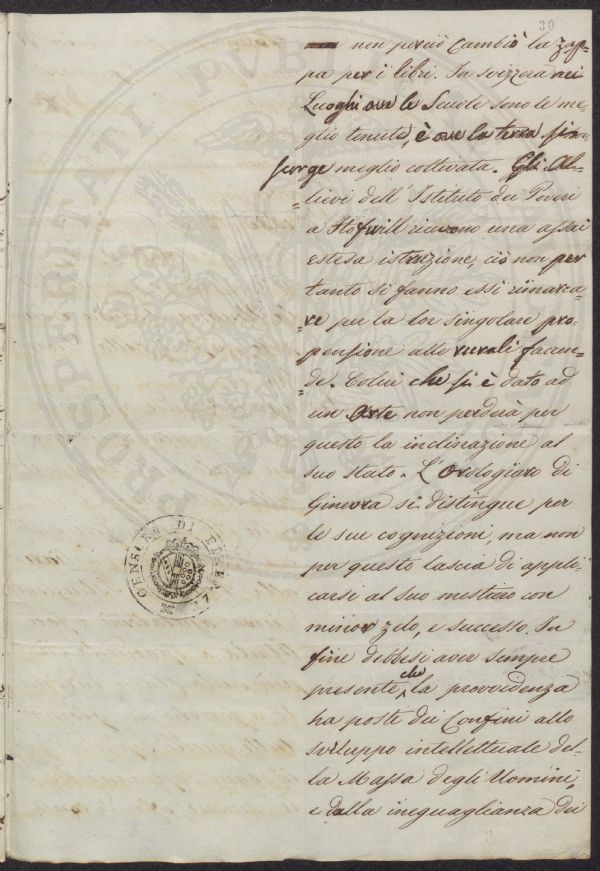 30
non perciò Cambiò la zap=
pa per i libri. In svizzera nei
Luoghi ove le Scuole sono le me=
glio tenute, è ove la terra si
scorge meglio coltivata. Gli Al=
=lievi dell' Istituto dei Poveri
a Hofwill ricevono una assai
estesa istruzione, ciò non per
tanto si fanno essi rimarca=
=re per la lor singolare pro=
pensione alle rurali faccen=
=de. Colui che si è dato ad
un Arte non perderà per
questo la inclinazione al
suo stato. L'Orologiaro di
Ginevra si distingue per
le sue cognizioni, ma non
per questo lascia di appli=
carsi al suo mestiero con
minor zelo, e successo. In
fine debbesi aver sempre
presente che la provvidenza
ha posti dei Confini allo
sviluppo intellettuale del=
la Massa degli Uomini,
e dalla ineguaglianza dei
PROSPERITATI PUBLI
CENSORE DI FIRENZE